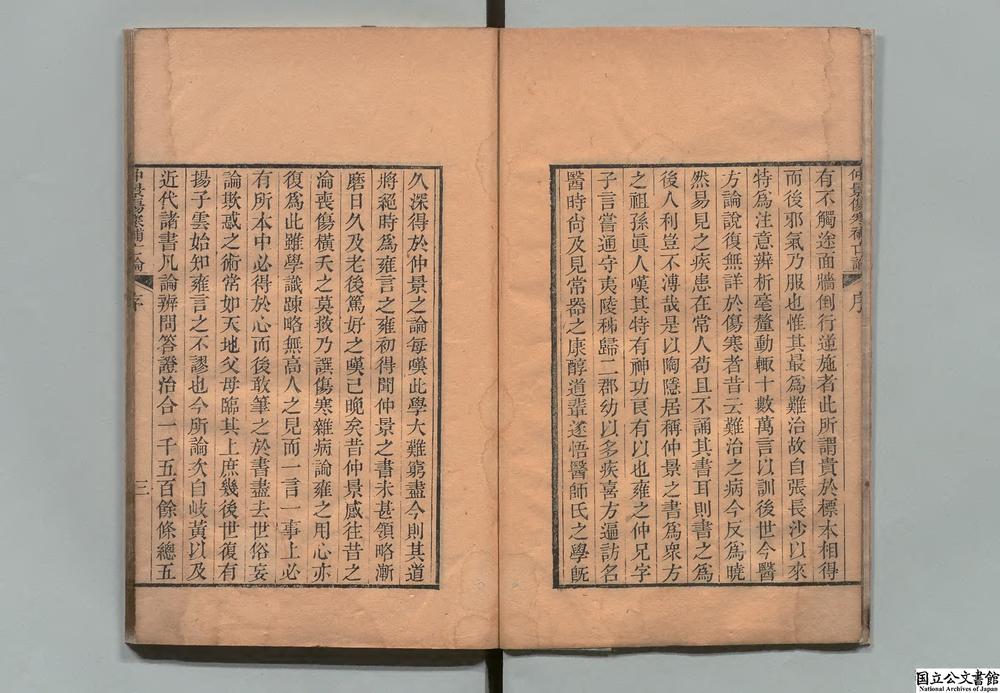 仲景傷寒補亡論 序
有不觸途面牆倒行逆施者此所謂貴於標木相得
而後邪氣乃服也惟其最爲難治故自張長沙以來
特爲注意辨析毫釐動輒十數萬言以訓後世今醫
方論說復無詳於傷寒者昔云難治之病今反爲曉
然易見之疾患在常人苟且不誦其書耳則書之爲
後人利豈不溥哉是以陶隱居稱仲景之書爲衆方
之祖孫眞人嘆其特有神功良有以也雍之仲兄字
子言嘗通守夷陵秭歸二郡幼以多疾喜方遍訪名
醫時尚及見常器之康醇道輩遂悟醫師氏之學旣
久深得於仲景之論每嘆此學大難窮盡今則其道
將絕時爲雍言之雍初得聞仲景之書未甚領略漸
磨日久及老後篤好之嘆己晚矣昔仲景感往昔之
淪喪傷橫夭之莫救乃譔傷寒雜病論雍之用心亦
復爲此雖學識踈略無高人之見而一言一事上必
有所本中必得於心而後敢筆之於書盡去世俗妄
論欺惑之術常如天地父母臨其上庶幾後世復有
揚子雲始知雍言之不謬也今所論次自岐黃以及
近代諸書凡論辨問答證治合一千五百餘條總五
仲景傷寒補亡論 序 三
国立公文書館
National Archives of Japan